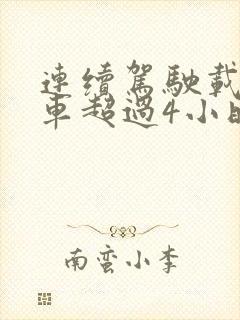 連續駕駛載
車超過4小時
南蛮小李